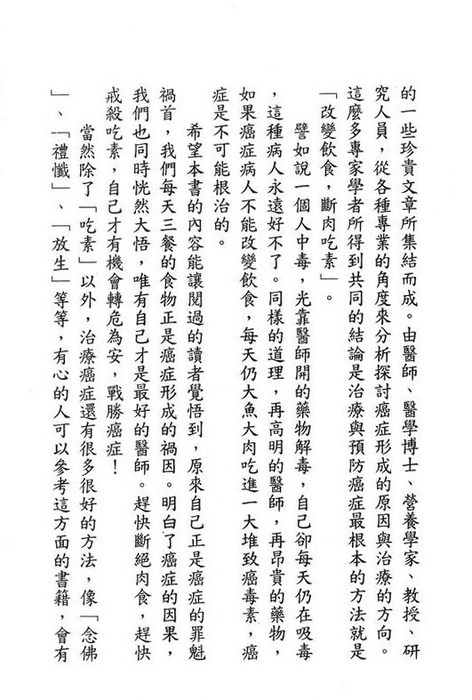 的一些珍貴文章所集結而成。由醫師、醫學博士、營養學家、教授、研
究人員，從各種專業的角度來分析探討癌症形成的原因與治療的方向。
這麼多專家學者所得到共同的結論是治療與預防癌症最根本的方法就是
「改變飲食，斷肉吃素」。
譬如說一個人中毒，光靠醫師開的藥物解毒，自己卻每天仍在吸毒
，這種病人永遠好不了。同樣的道理，再高明的醫師，再昂貴的藥物，
如果癌症病人不能改變飲食，每天仍大魚大肉吃進一大堆致癌毒素，癌
症是不可能根治的。
希望本書的內容能讓閱過的讀者覺悟到，原來自己正是癌症的罪魁
禍首，我們每天三餐的食物正是癌症形成的禍因。明白了癌症的因果，
我們也同時恍然大悟，唯有自己才是最好的醫師。趕快斷絕肉食，趕快
戒殺吃素，自己才有機會轉危為安，戰勝癌症！
當然除了「吃素」以外，治療癌症還有很多很好的方法，像「念佛
」、「禮懺」、「放生」等等，有心的人可以參考這方面的書籍，會有